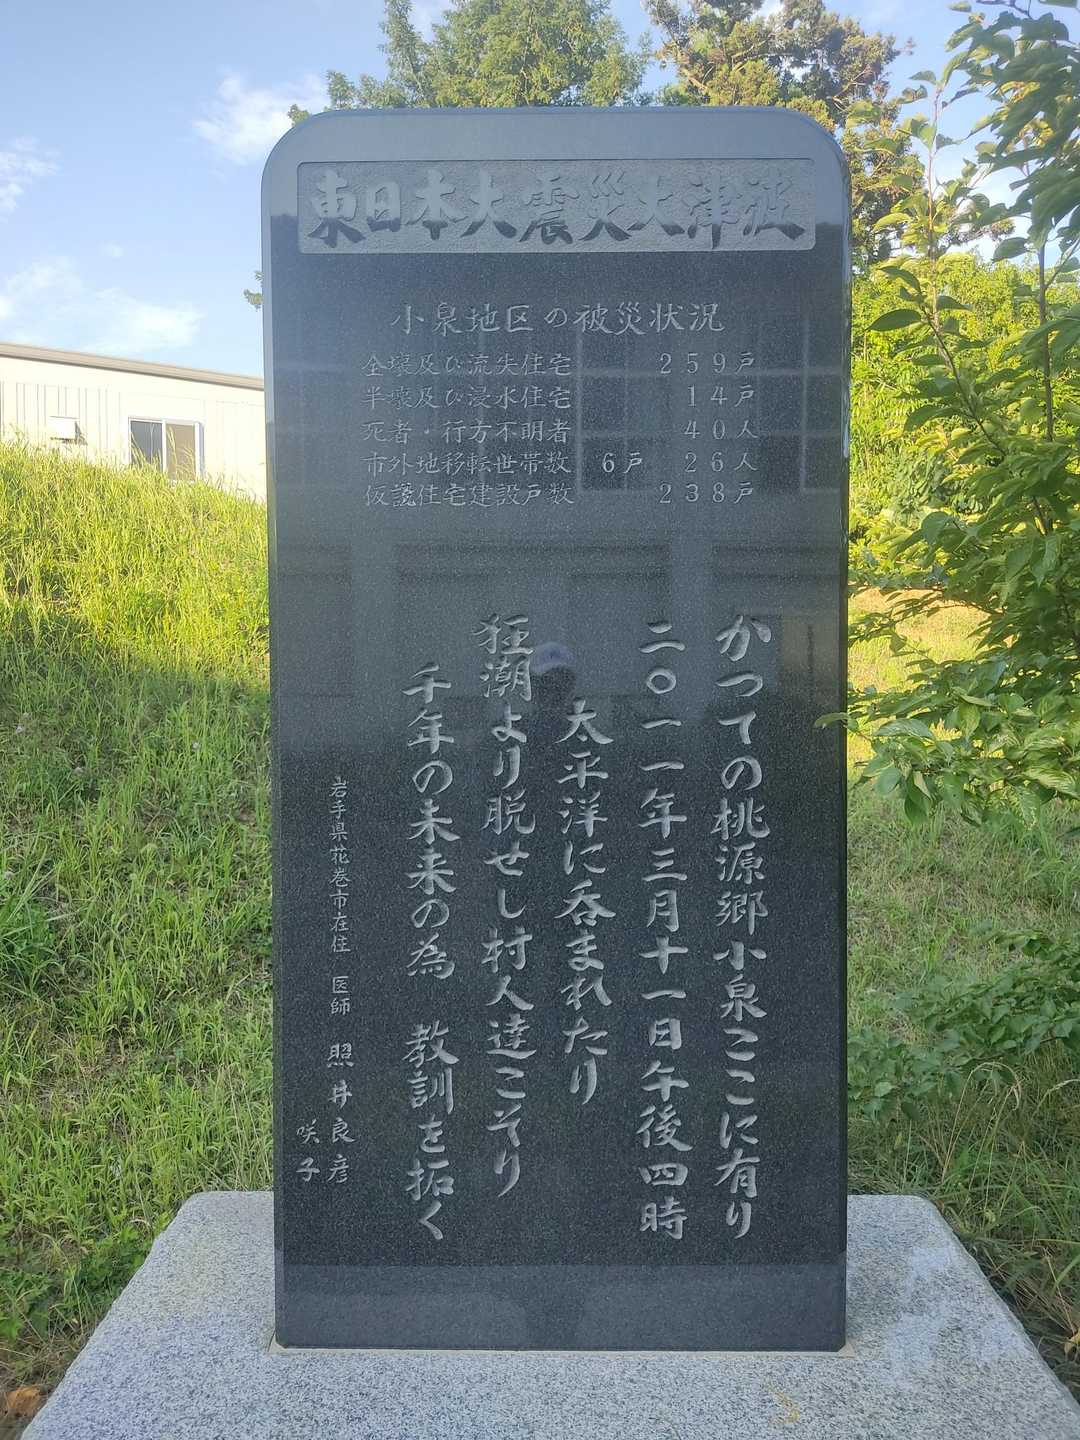 東日本大震災大津波
小泉地区の被災状況
全壊及び流失住宅 259戸
半壊及び浸水住宅 14戸
死者・行方不明者 40人
市外地移転世帯数 6戸 26人
仮設住宅建設戸数 238戸
かつての桃源郷小泉ここに有り
二〇一一年三月十一日午後四時
太平洋に呑まれたり
狂潮より脱せし村人達こぞり
千年の未来の為 教訓を拓く
岩手県花巻市在住 医師 照井良彦
咲子